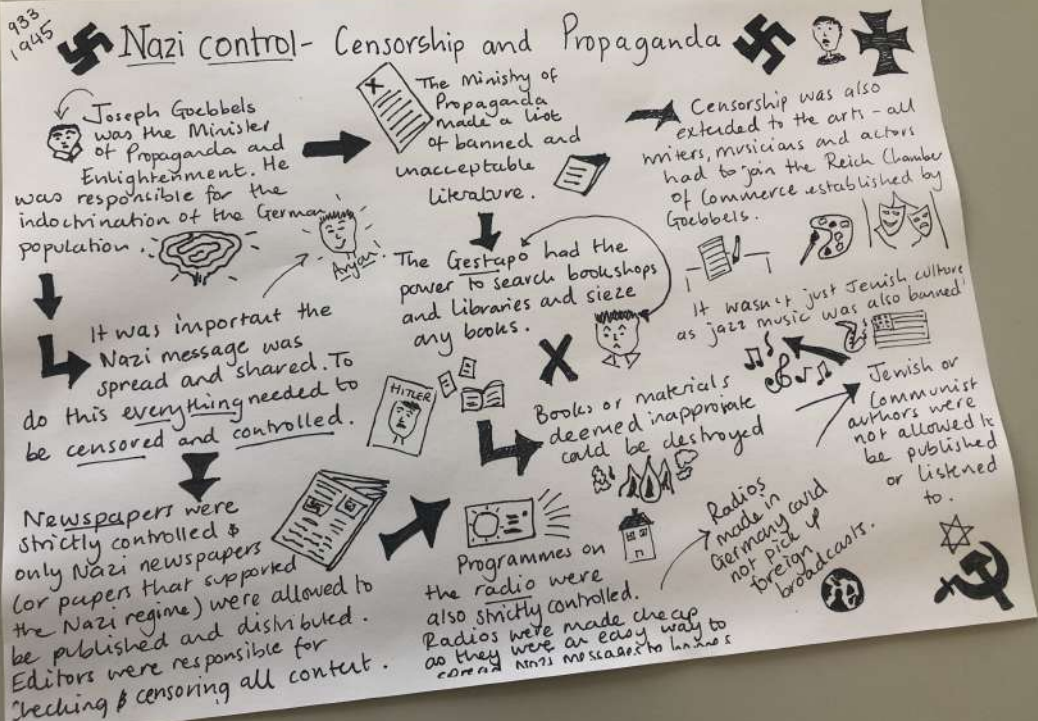 933
1945
Nazi control- Censorship and Propaganda
Joseph Goebbels
was the Minister
of Propaganda and
Enlightenment. He
was responsible for the
indoctrination of the German
population.
Aryan.
It was important the
Nazi message was
spread and shared. To
do this everything needed to
be censored and controlled.
Newspapers were
strictly controlled &
only Nazi newspapers
(or papers that supported
the Nazi regime) were allowed to
be published and distributed.
Editors were responsible for
checking & censoring all content.
The Ministry of
Propaganda
made a list
of banned and
unacceptable
literature.
The Gestapo had the
power to search bookshops
and libraries and sieze
any books.
HITLER
Books or materials
deemed inappropiate
could be destroyed
Programmes on
the radio were
also strictly controlled.
Radios were made cheap
as they were an easy way to
spread Nazi messages to
Radios
made in
Germany could
not pick up
foreign
broadcasts.
Censorship was also
extended to the arts - all
writers, musicians and actors
had to join the Reich Chamber
of Commerce established by
Goebbels.
It wasn't just Jewish culture
as jazz music was also banned
Jewish or
Communist
authors were
not allowed to
be published
or listened
to.